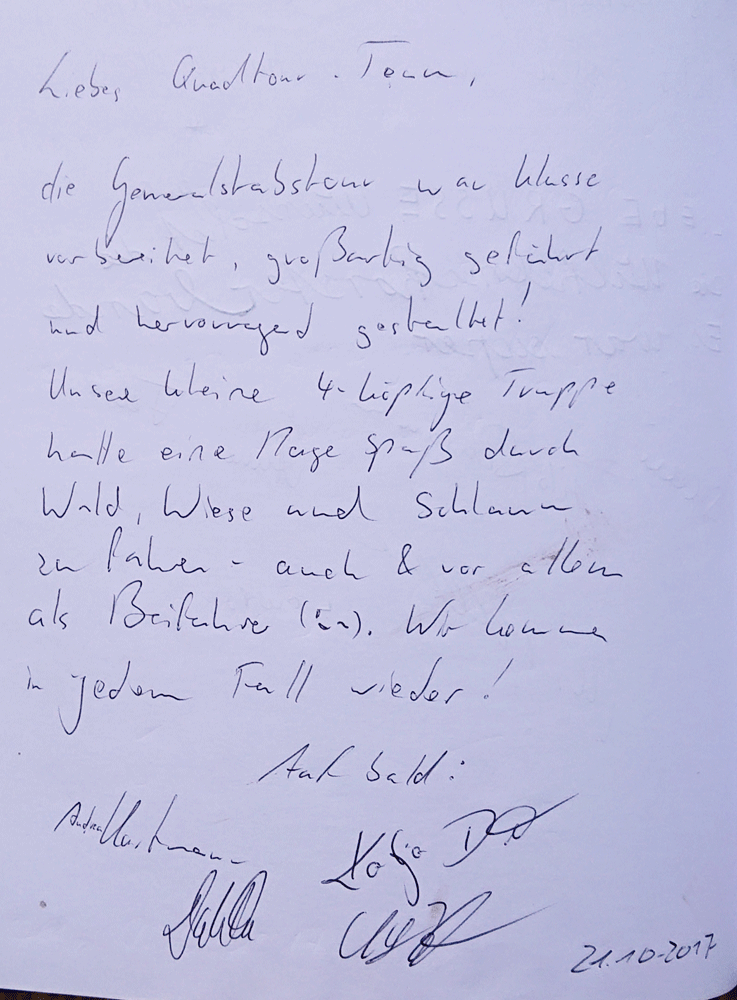 Liebes Quadtour-Team,
die Generalstabstour war klasse
vorbereitet, großartig geführt
und hervorragend gestaltet!
Unsere kleine 4-köpfige Truppe
hatte eine Menge Spaß durch
Wald, Wiese und Schlamm
zu fahren - auch & vor allem
als Beifahrer (in). Wir kommen
in jedem Fall wieder!
Auf bald:
Hartmann
Katja
21.10.2017